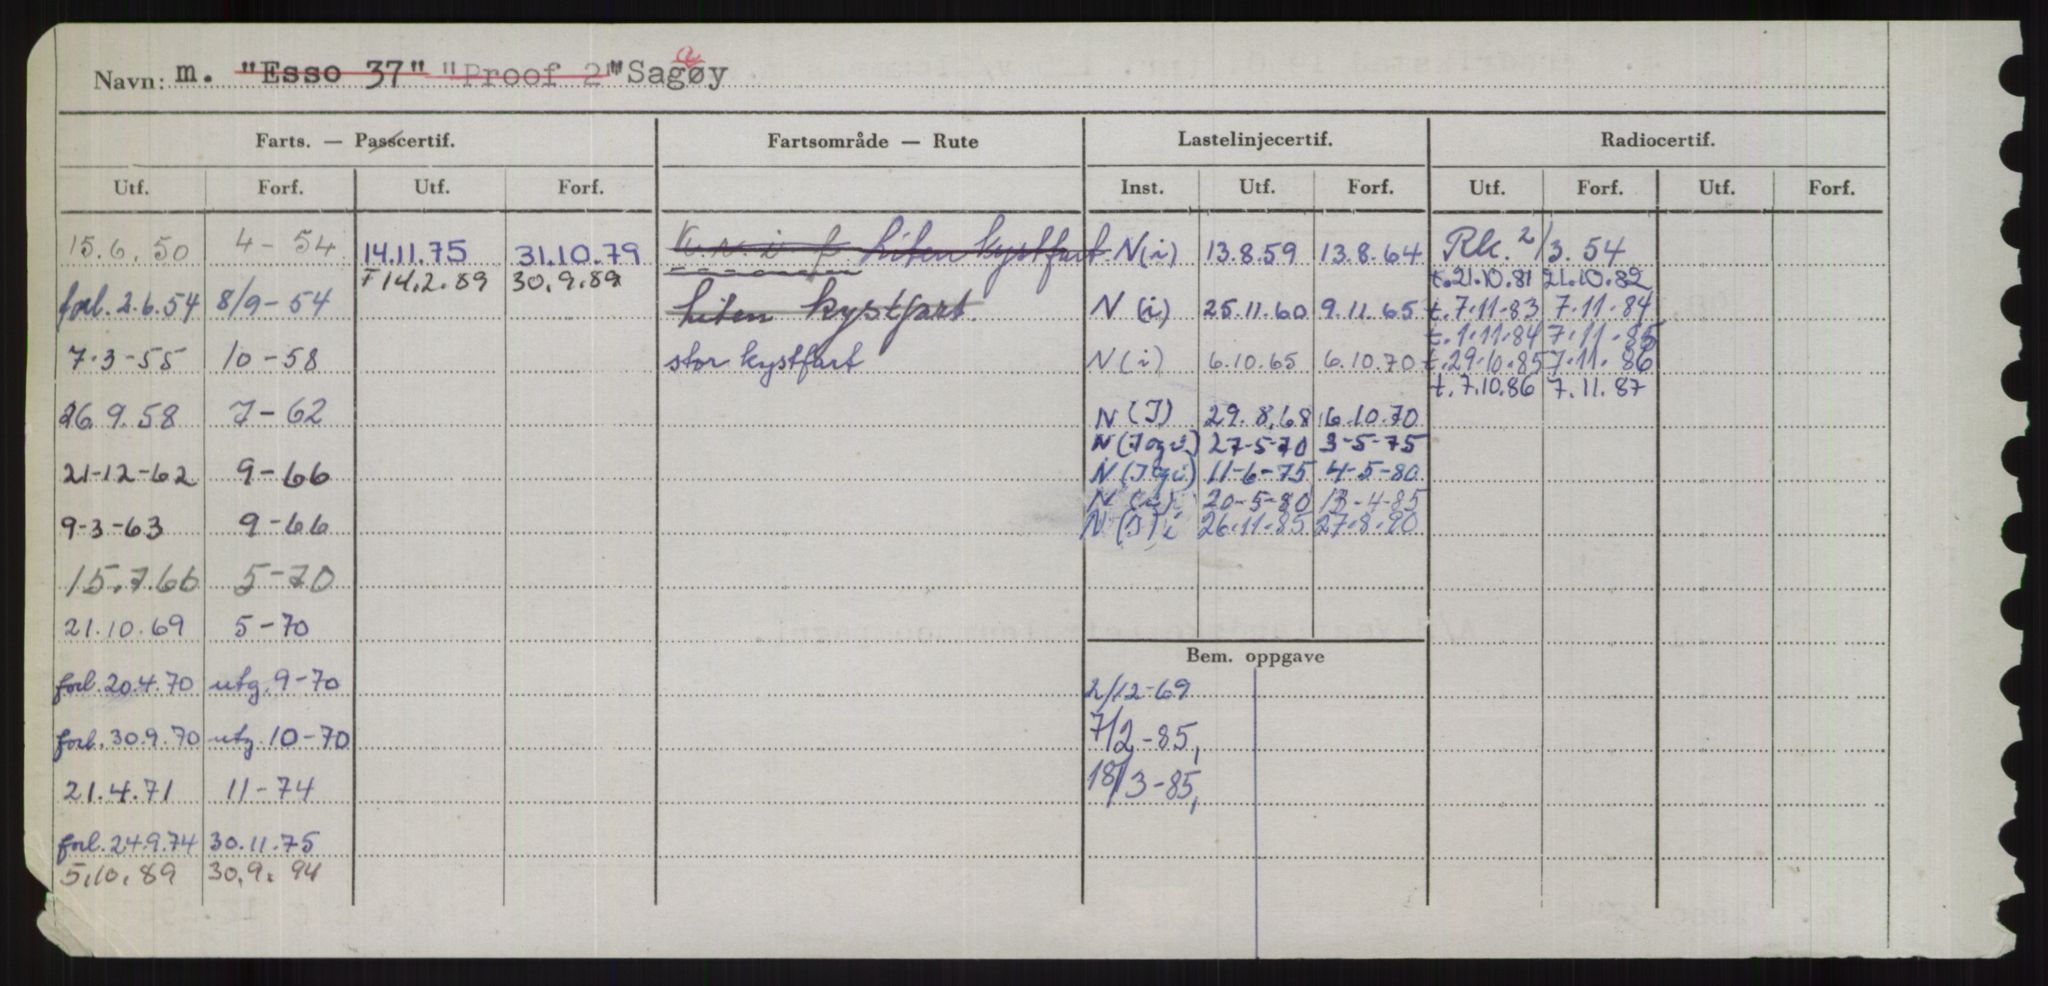 Navn: m. "Esso 37" "Proof 2" "Sagøy
a
Farts. — Passcertif. Fartsområde — Rute Lastelinjecertif. Radiocertif.
Utf. Forf. Utf. Forf. Inst. Utf. Forf. Utf. Forf. Utf. Forf.
15.6.50 4-54 14.11.75 31.10.79 liten kystfart N(i) 13.8.59 13.8.64 Rk. 2/3.54
F 14.2.89 30.9.89 t.21.10.81 21.10.82
forl. 2.6.54 8/9-54 liten kystfart N(i) 25.11.60 9.11.65 t.7.11.83 7.11.84
t.1.11.84 7.11.85
7-3-55 10-58 stor kystfart N(i) 6.10.65 6.10.70 t.29.10.85 7.11.86
t.7.10.86 7.11.87
26.9.58 7-62 N(I) 29.8.68 6.10.70
N(I og i) 27-5-70 3-5-75
21-12-62 9-66 N(I og i) 11-6-75 4-5-80
N 20-5-80 13-4-85
9-3-63 9-66 N(I) i 26.11.85 27.8.90
15.7.66 5-70
21.10.69 5-70
Bem. oppgave
forl. 20.4.70 utg. 9-70 2/12-69
forl. 30.9.70 utg. 10-70 7/2-85,
21.4.71 11-74 18/3-85,
forl. 24.9.74 30.11.75
5.10.89 30.9.94